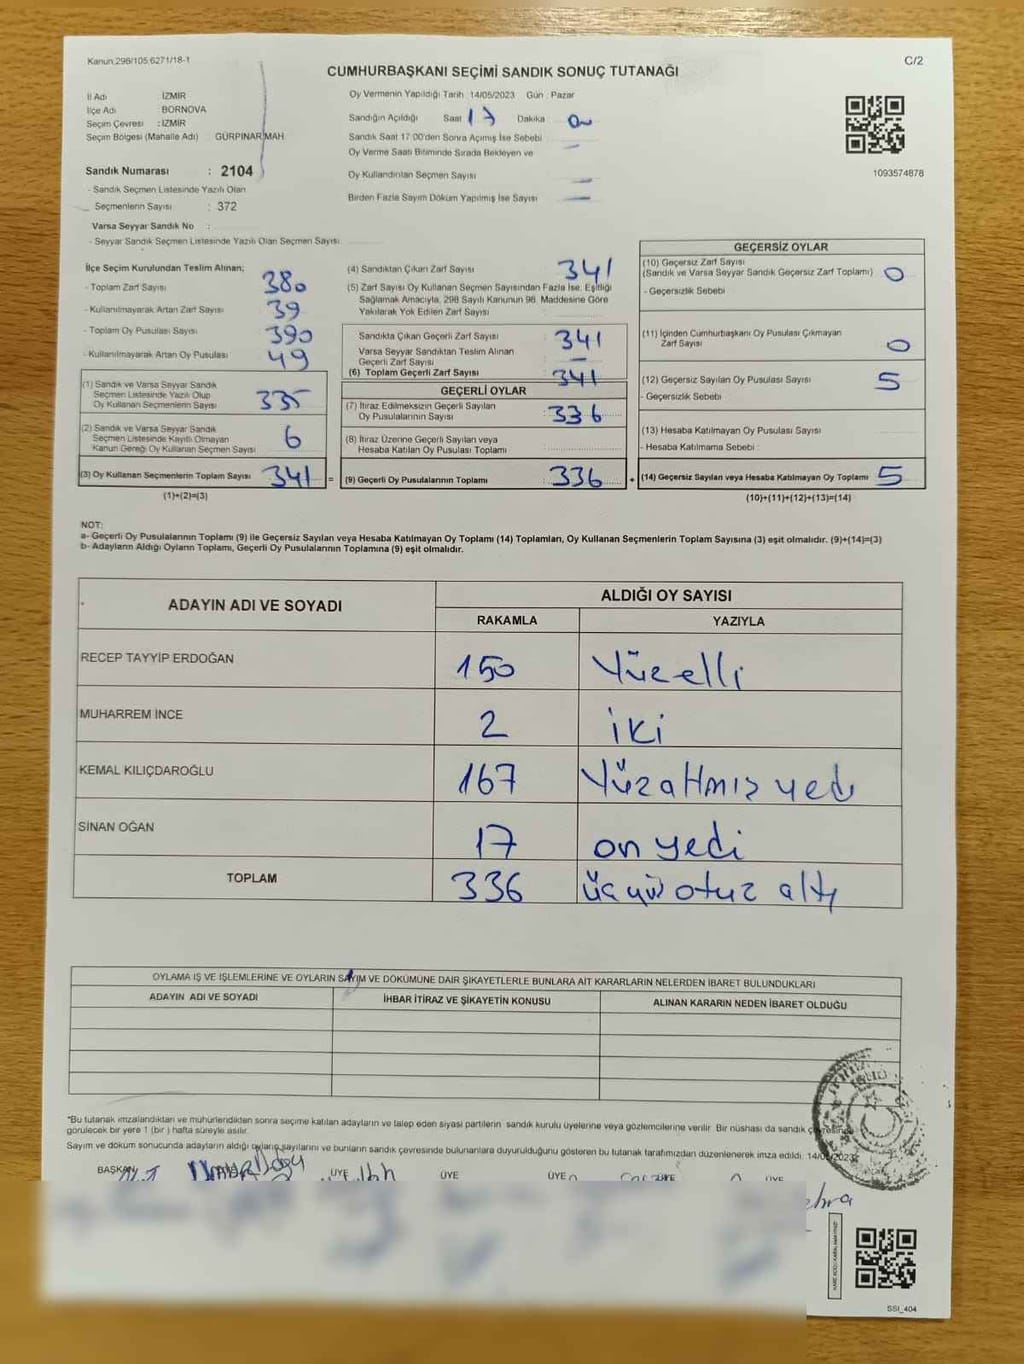 Kanun,298/105,6271/18-1
C/2
CUMHURBAŞKANI SEÇİMİ SANDIK SONUÇ TUTANAĞI
İl Adı İZMİR
İlçe Adı BORNOVA
Seçim Çevresi : İZMİR
Seçim Bölgesi (Mahalle Adı) GÜRPINAR MAH.
Oy Vermenin Yapıldığı Tarih 14/05/2023 Gün : Pazar
Sandığın Açıldığı Saat 17 Dakika 00
Sandık Saat 17:00'den Sonra Açımış İse Sebebi
Oy Verme Saati Bitiminde Sırada Bekleyen ve
Oy Kullandırılan Seçmen Sayısı
Birden Fazla Sayım Döküm Yapılmış İse Sayısı
1093574878
Sandık Numarası : 2104
- Sandık Seçmen Listesinde Yazılı Olan
Seçmenlerin Sayısı : 372
Varsa Seyyar Sandık No :
- Seyyar Sandık Seçmen Listesinde Yazılı Olan Seçmen Sayısı:
İlçe Seçim Kurulundan Teslim Alınan;
- Toplam Zarf Sayısı 380
- Kullanılmayarak Artan Zarf Sayısı 39
- Toplam Oy Pusulası Sayısı 390
- Kullanılmayarak Artan Oy Pusulası 49
(1) Sandık ve Varsa Seyyar Sandık
Seçmen Listesinde Yazılı Olup
Oy Kullanan Seçmenlerin Sayısı 335
(2) Sandık ve Varsa Seyyar Sandık
Seçmen Listesinde Kayıtlı Olmayan
Kanun Gereği Oy Kullanan Seçmen Sayısı 6
(3) Oy Kullanan Seçmenlerin Toplam Sayısı 341 =
(1)+(2)=(3)
(4) Sandıktan Çıkan Zarf Sayısı 341
(5) Zarf Sayısı Oy Kullanan Seçmen Sayısından Fazla İse, Eşitliği
Sağlamak Amacıyla, 298 Sayılı Kanunun 98. Maddesine Göre
Yakılarak Yok Edilen Zarf Sayısı
Sandıkta Çıkan Geçerli Zarf Sayısı 341
Varsa Seyyar Sandıktan Teslim Alınan
Geçerli Zarf Sayısı –
(6) Toplam Geçerli Zarf Sayısı 341
GEÇERLİ OYLAR
(7) İtiraz Edilmeksizin Geçerli Sayılan
Oy Pusulalarının Sayısı 336
(8) İtiraz Üzerine Geçerli Sayılan veya
Hesaba Katılan Oy Pusulası Toplamı
(9) Geçerli Oy Pusulalarının Toplamı 336 +
GEÇERSİZ OYLAR
(10) Geçersiz Zarf Sayısı
(Sandık ve Varsa Seyyar Sandık Geçersiz Zarf Toplamı) 0
- Geçersizlik Sebebi
(11) İçinden Cumhurbaşkanı Oy Pusulası Çıkmayan
Zarf Sayısı 0
(12) Geçersiz Sayılan Oy Pusulası Sayısı 5
- Geçersizlik Sebebi
(13) Hesaba Katılmayan Oy Pusulası Sayısı
- Hesaba Katılmama Sebebi
(14) Geçersiz Sayılan veya Hesaba Katılmayan Oy Toplamı 5
(10)+(11)+(12)+(13)=(14)
NOT:
a- Geçerli Oy Pusulalarının Toplamı (9) ile Geçersiz Sayılan veya Hesaba Katılmayan Oy Toplamı (14) Toplamları, Oy Kullanan Seçmenlerin Toplam Sayısına (3) eşit olmalıdır. (9)+(14)=(3)
b- Adayların Aldığı Oyların Toplamı, Geçerli Oy Pusulalarının Toplamına (9) eşit olmalıdır.
ADAYIN ADI VE SOYADI
ALDIĞI OY SAYISI
RAKAMLA YAZIYLA
RECEP TAYYİP ERDOĞAN 150 Yüzelli
MUHARREM İNCE 2 iki
KEMAL KILIÇDAROĞLU 167 Yüzatmış yedi
SİNAN OĞAN 17 on yedi
TOPLAM 336 üçyüz otuz altı
OYLAMA İŞ VE İŞLEMLERİNE VE OYLARIN SAYIM VE DÖKÜMÜNE DAİR ŞİKAYETLERLE BUNLARA AİT KARARLARIN NELERDEN İBARET BULUNDUKLARI
ADAYIN ADI VE SOYADI İHBAR İTİRAZ VE ŞİKAYETİN KONUSU ALINAN KARARIN NEDEN İBARET OLDUĞU
*Bu tutanak imzalandıktan ve mühürlendikten sonra seçime katılan adayların ve talep eden siyasi partilerin sandık kurulu üyelerine veya gözlemcilerine verilir. Bir nüshası da sandık çevresinde
görülecek bir yere 1 (bir) hafta süreyle asılır.
Sayım ve döküm sonucunda adayların aldığı oyların sayılarını ve bunların sandık çevresinde bulunanlara duyurulduğunu gösteren bu tutanak tarafımızdan düzenlenerek imza edildi. 14/05/2023
BAŞKAN ÜYE ÜYE ÜYE ÜYE
SSI_404